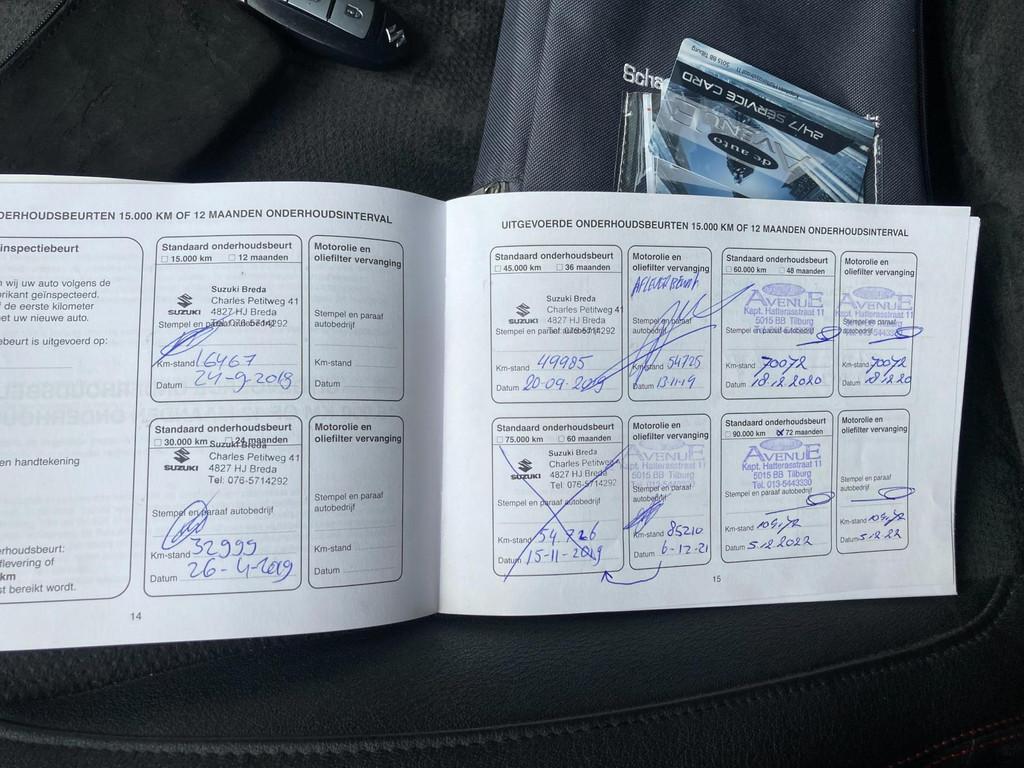 Scha
5015 BB Tilburg
24/7 SERVICE CARD
AVENUE
de auto
DERHOUDSBEURTEN 15.000 KM OF 12 MAANDEN ONDERHOUDSINTERVAL
inspectiebeurt
n wij uw auto volgens de
rikant geïnspecteerd.
f de eerste kilometer
et uw nieuwe auto.
ebeurt is uitgevoerd op:
en handtekening
erhoudsbeurt:
flevering of
km
st bereikt wordt.
Standaard onderhoudsbeurt
15.000 km 12 maanden
Suzuki Breda
Charles Petitweg 41
SUZUKI 4827 HJ Breda
Tel: 076-5714292
Stempel en paraaf autobedrijf
Km-stand 16467
Datum 24-9-2018
Motorolie en
oliefilter vervanging
Stempel en paraaf
autobedrijf
Km-stand
Datum
Standaard onderhoudsbeurt
30.000 km 24 maanden
Suzuki Breda
Charles Petitweg 41
SUZUKI 4827 HJ Breda
Tel: 076-5714292
Stempel en paraaf autobedrijf
Km-stand 32999
Datum 26-4-2019
Motorolie en
oliefilter vervanging
Stempel en paraaf
autobedrijf
Km-stand
Datum
14
UITGEVOERDE ONDERHOUDSBEURTEN 15.000 KM OF 12 MAANDEN ONDERHOUDSINTERVAL
Standaard onderhoudsbeurt
45.000 km 36 maanden
Suzuki Breda
Charles Petitweg 41
SUZUKI 4827 HJ Breda
Tel: 076-5714292
Stempel en paraaf autobedrijf
Km-stand 49985
Datum 20-09-2019
Motorolie en
oliefilter vervanging
AFLEVERBEURT
Stempel en paraaf
autobedrijf
Km-stand 54725
Datum 13-11-19
Standaard onderhoudsbeurt
60.000 km 48 maanden
AVENUE
Kapt. Hatterasstraat 11
5015 BB Tilburg
Stempel en paraaf autobedrijf
Km-stand 70072
Datum 18.12.2020
Motorolie en
oliefilter vervanging
AVENUE
Kapt. Hatterasstraat 11
5015 BB Tilburg
Stempel en paraaf
autobedrijf
Km-stand 70072
Datum 18.12.20
Standaard onderhoudsbeurt
75.000 km 60 maanden
Suzuki Breda
Charles Petitweg 41
SUZUKI 4827 HJ Breda
Tel: 076-5714292
Stempel en paraaf autobedrijf
Km-stand 54726
Datum 15-11-2019
Motorolie en
oliefilter vervanging
AVENUE
Kapt. Hatterasstraat 11
5015 BB Tilburg
Stempel en paraaf
autobedrijf
Km-stand 85210
Datum 6-12-21
Standaard onderhoudsbeurt
90.000 km x 72 maanden
AVENUE
Kapt. Hatterasstraat 11
5015 BB Tilburg
Tel. 013-5443330
Stempel en paraaf autobedrijf
Km-stand
Datum 5.12.2022
Motorolie en
oliefilter vervanging
Stempel en paraaf
autobedrijf
Km-stand
Datum 5.12.22
15